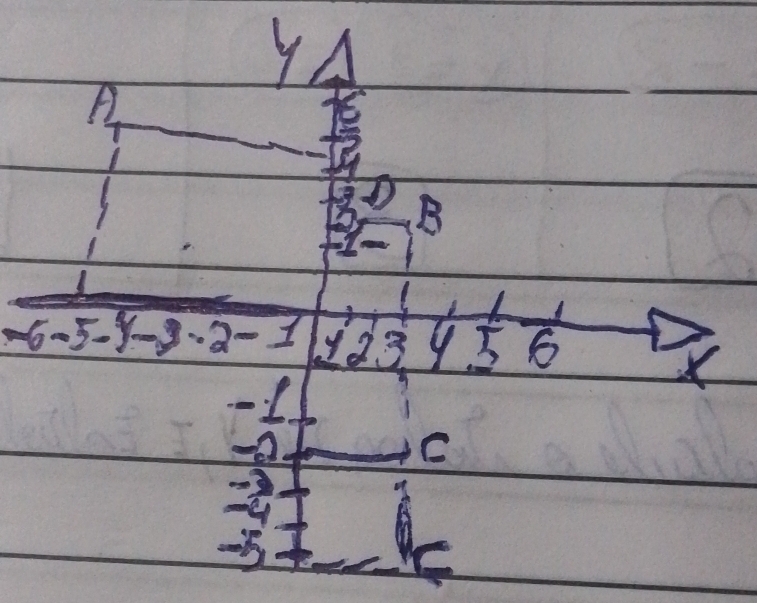 Y
6
A
5
4
3 D
2 B
1
-6 -5 -4 -3 -2 -1 1 2 3 4 5 6
X
-1
-2 C
-3
-4
-5 C